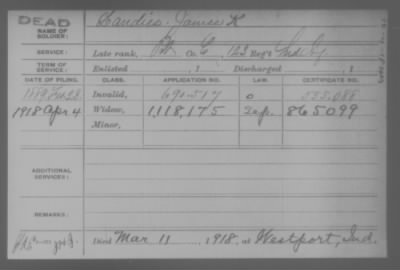 DEAD
NAME OF SOLDIER: Landies, James K
SERVICE: Late rank, Pt Co. E, 123 Reg't Ind. Inf
TERM OF SERVICE: Enlisted , 1 Discharged , 1
DATE OF FILING. CLASS. APPLICATION NO. LAW. CERTIFICATE NO.
1889 Invalid, 690.517
1918 Apr 4 Widow, 1,118,175 865099
Minor,
ADDITIONAL SERVICES:
REMARKS:
Died Mar 11 , 1918, at Westport, Ind.